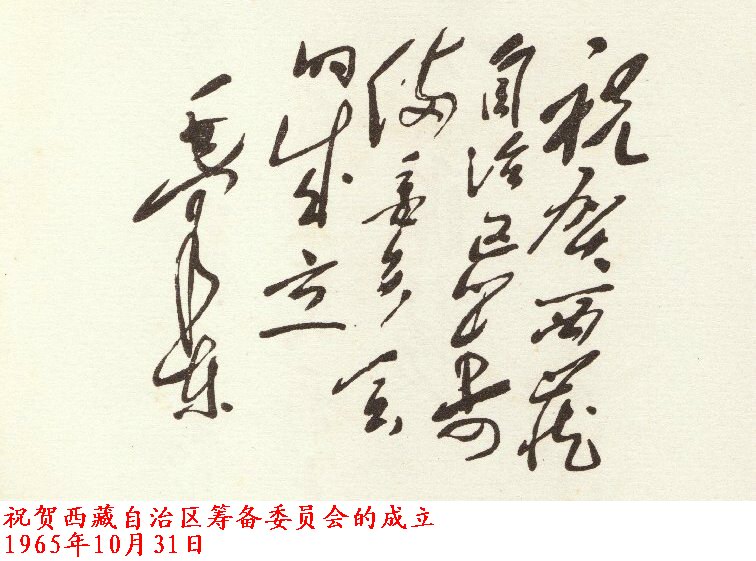 祝贺西藏
自治区筹
備委员会
的成立
毛泽东
祝贺西藏自治区筹备委员会的成立
1965年10月31日